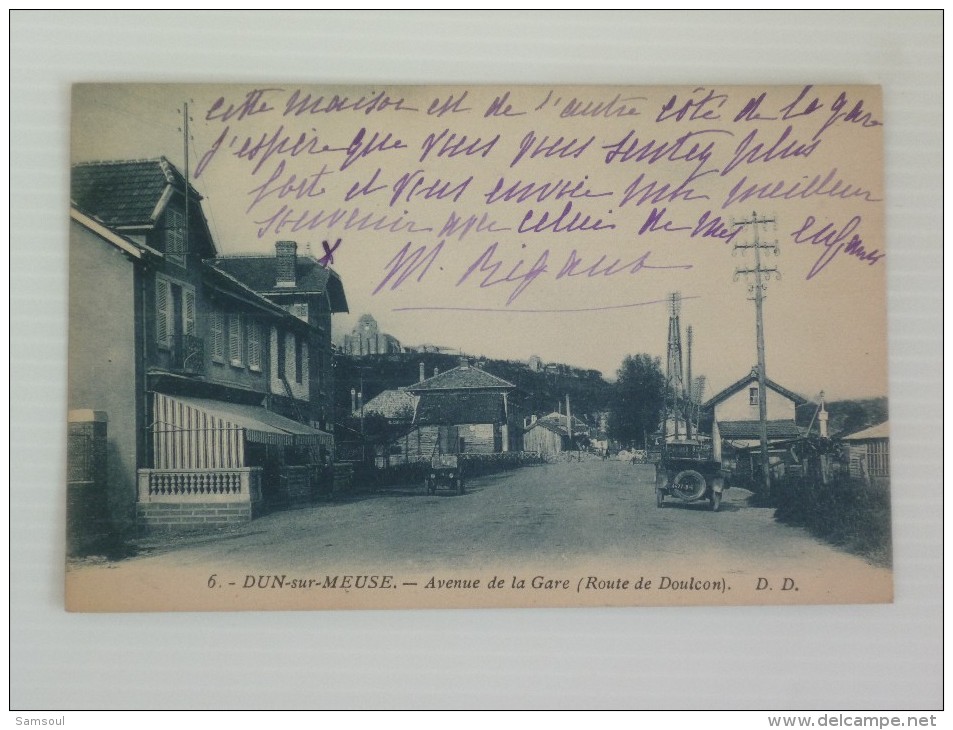 cette maison est de l'autre côté de la gare
j'espère que vous vous sentez plus
fort et vous envoie mon meilleur
souvenir avec celui de mes enfants
M. Rigaut
x
6. - DUN-sur-MEUSE. — Avenue de la Gare (Route de Doulcon). D. D.
Samsoul
www.delcampe.net